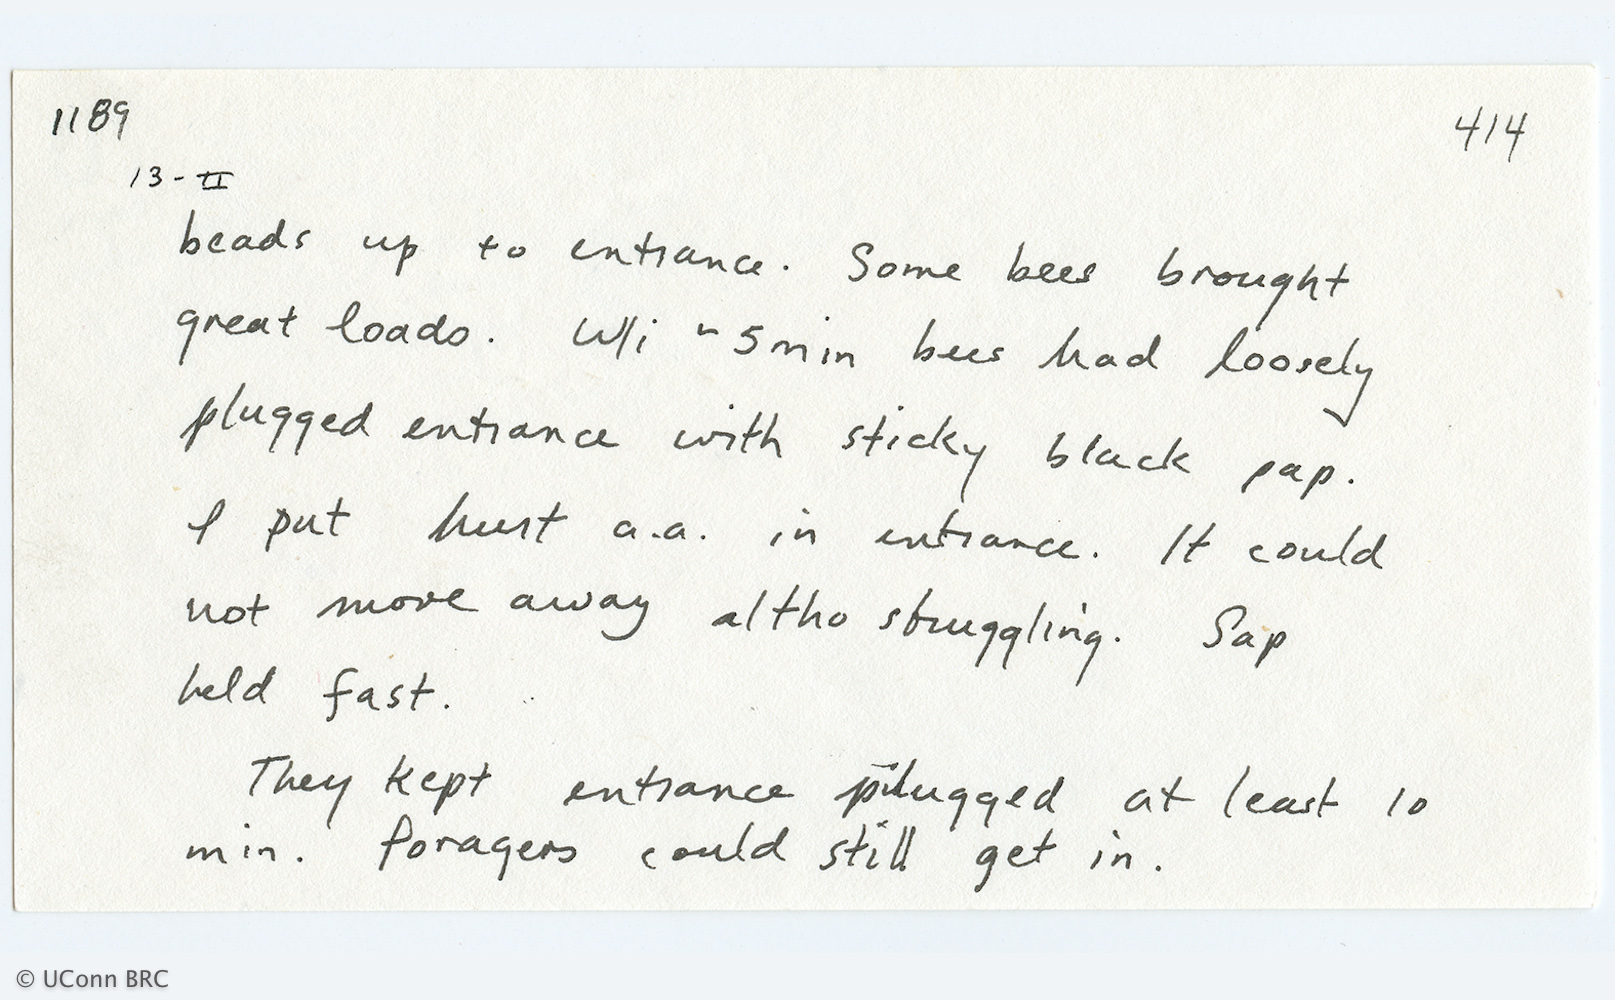 1189
414
13-II
beads up to entrance. Some bees brought
great loads. W/i ~5min bees had loosely
plugged entrance with sticky black pap.
I put hurt a.a. in entrance. It could
not move away altho struggling. Sap
held fast.
They kept entrance plugged at least 10
min. Foragers could still get in.
© UConn BRC